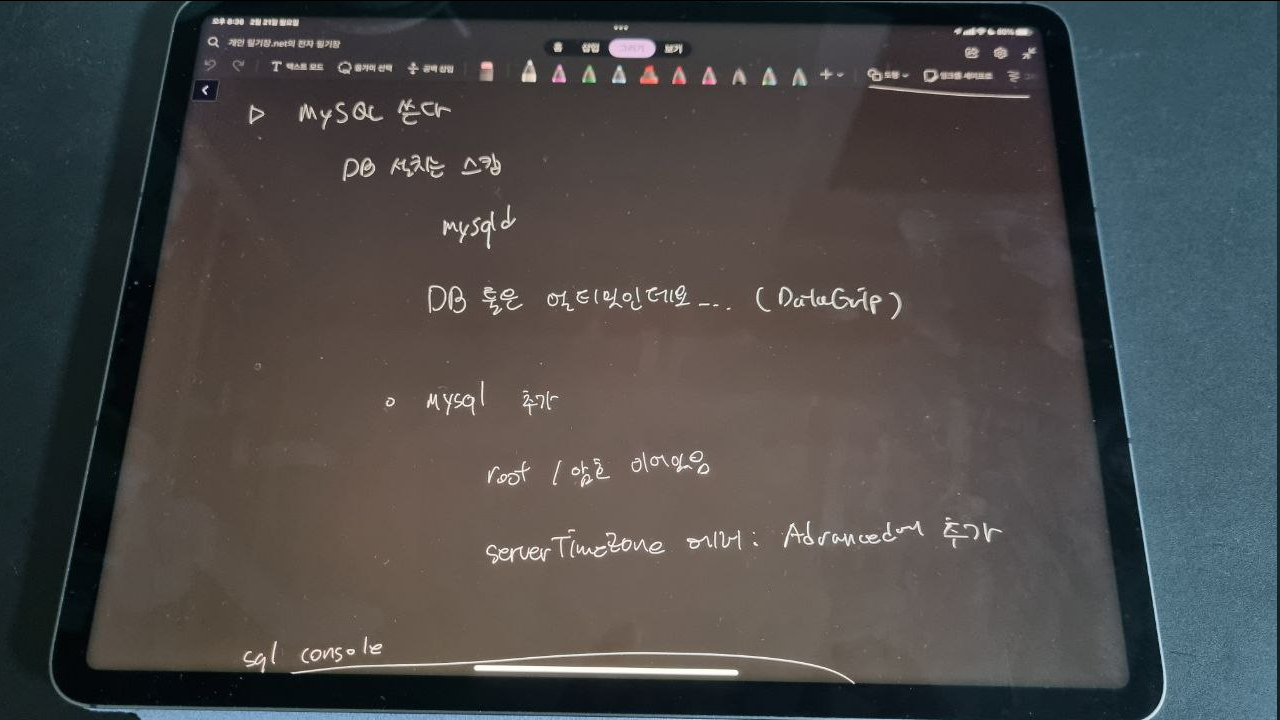 오후 8:36 2월 21일 월요일
80%
개인 필기장.net의 전자 필기장
홈 삽입 그리기 보기
텍스트 모드 올가미 선택 공백 삽입
도형 잉크를 셰이프로
MySQL 쓴다
DB 설치는 스킵
mysqld
DB 툴은 얼티밋인데요... (DataGrip)
mysql 추가
root / 암호
serverTimeZone 에러: Advanced에 추가
sql console